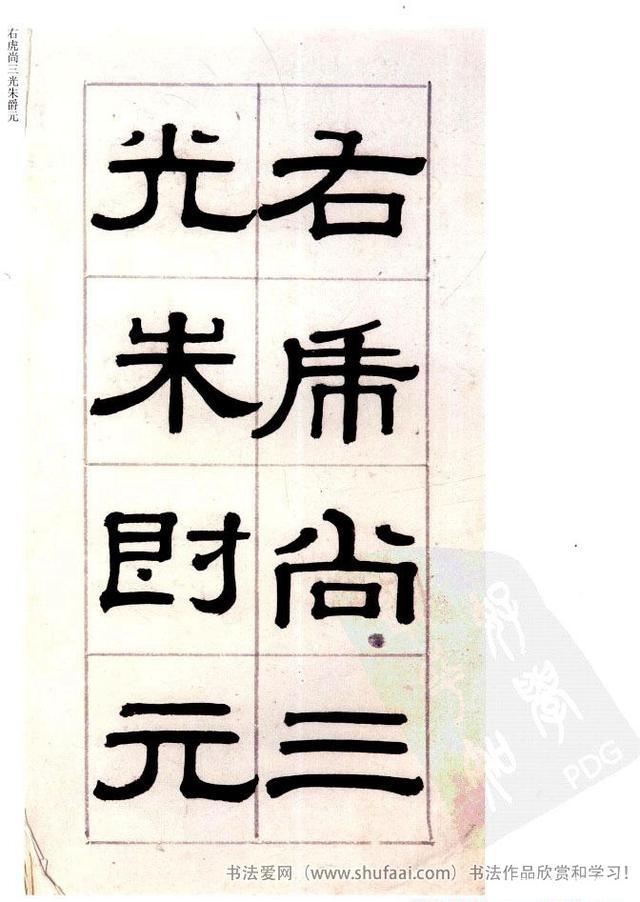 右虎尚三光朱爵元
右虎尚三
光朱爵元
PDG
书法爱网（www.shufaai.com）书法作品欣赏和学习！